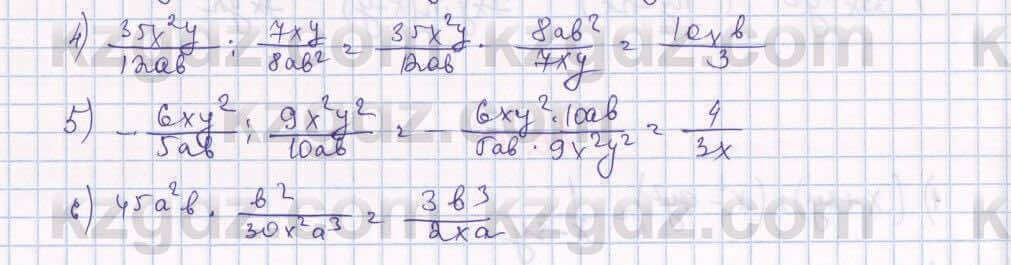 4) 35x²y/12ab : 7xy/8ab² = 35x²y/12ab · 8ab²/7xy = 10xb/3
5) - 6xy²/5ab : 9x²y²/10ab = - 6xy²·10ab/5ab·9x²y² = 4/3x
6) 45a²b · b²/30x²a³ = 3b³/2xa
kzgdz.com kzgdz.com
kzgdz.com kzgdz.com